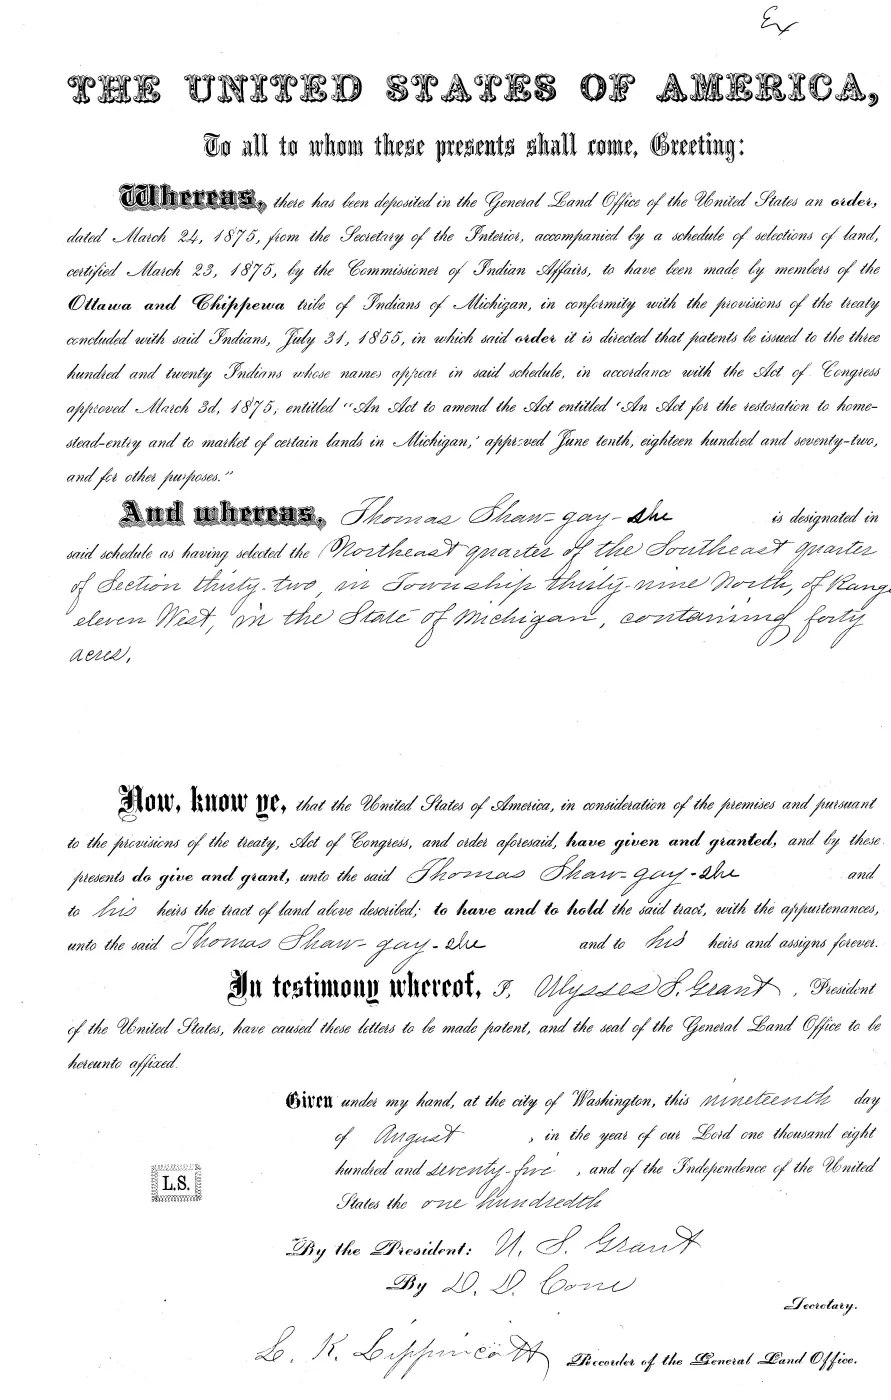 Ex
THE UNITED STATES OF AMERICA,
To all to whom these presents shall come, Greeting:
Whereas, there has been deposited in the General Land Office of the United States an order,
dated March 24, 1875, from the Secretary of the Interior, accompanied by a schedule of selections of land,
certified March 23, 1875, by the Commissioner of Indian Affairs, to have been made by members of the
Ottawa and Chippewa tribe of Indians of Michigan, in conformity with the provisions of the treaty
concluded with said Indians, July 31, 1855, in which said order it is directed that patents be issued to the three
hundred and twenty Indians whose names appear in said schedule, in accordance with the Act of Congress
approved March 3d, 1875, entitled "An Act to amend the Act entitled 'An Act for the restoration to home-
stead-entry and to market of certain lands in Michigan,' approved June tenth, eighteen hundred and seventy-two,
and for other purposes."
And whereas, Thomas Shaw-gay-she is designated in
said schedule as having selected the Northeast quarter of the Southeast quarter
of Section thirty-two, in Township thirty-nine North, of Range
eleven West, in the State of Michigan, containing forty
acres.
Now, know ye, that the United States of America, in consideration of the premises and pursuant
to the provisions of the treaty, Act of Congress, and order aforesaid, have given and granted, and by these
presents do give and grant, unto the said Thomas Shaw-gay-she and
to his heirs the tract of land above described; to have and to hold the said tract, with the appurtenances,
unto the said Thomas Shaw-gay-she and to his heirs and assigns forever.
In testimony whereof, I, Ulysses S. Grant, President
of the United States, have caused these letters to be made patent, and the seal of the General Land Office to be
hereunto affixed.
Given under my hand, at the city of Washington, this nineteenth day
of August , in the year of our Lord one thousand eight
hundred and seventy-five , and of the Independence of the United
States the one hundredth
L.S.
By the President: U. S. Grant
By D. D. Cone
Secretary.
L. K. Lippincott Recorder of the General Land Office.